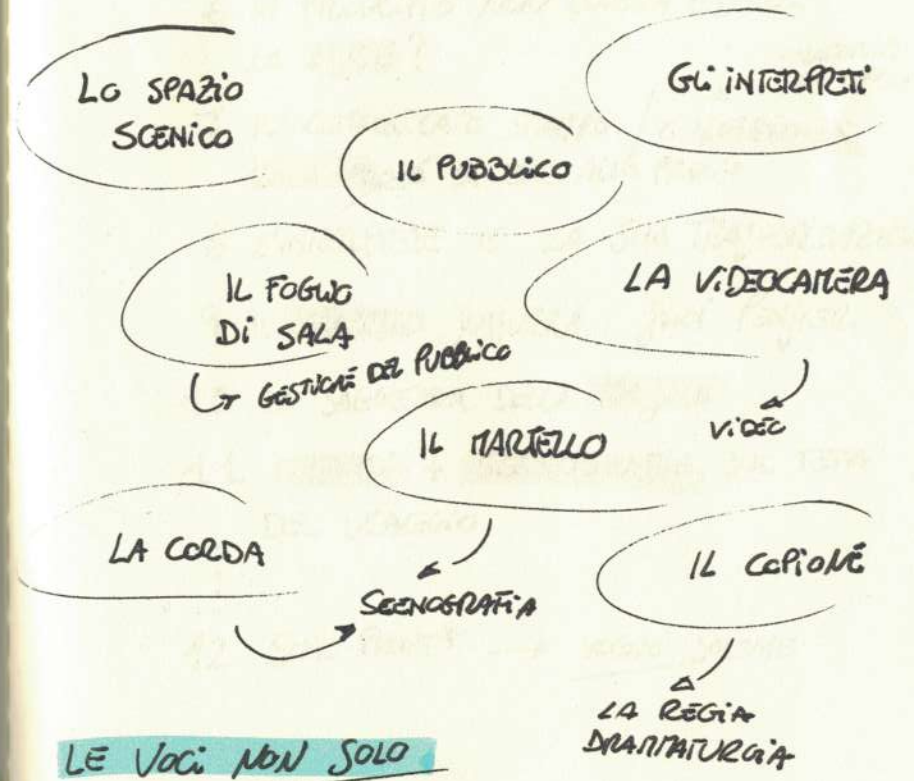 LO SPAZIO
SCENICO
GLI INTERPRETI
IL PUBBLICO
IL FOGLIO
DI SALA
GESTIONE DEL PUBBLICO
LA VIDEOCAMERA
VIDEO
IL MARTELLO
LA CORDA
SCENOGRAFIA
IL COPIONE
LA REGIA
DRAMMATURGIA
LE VOCI NON SOLO